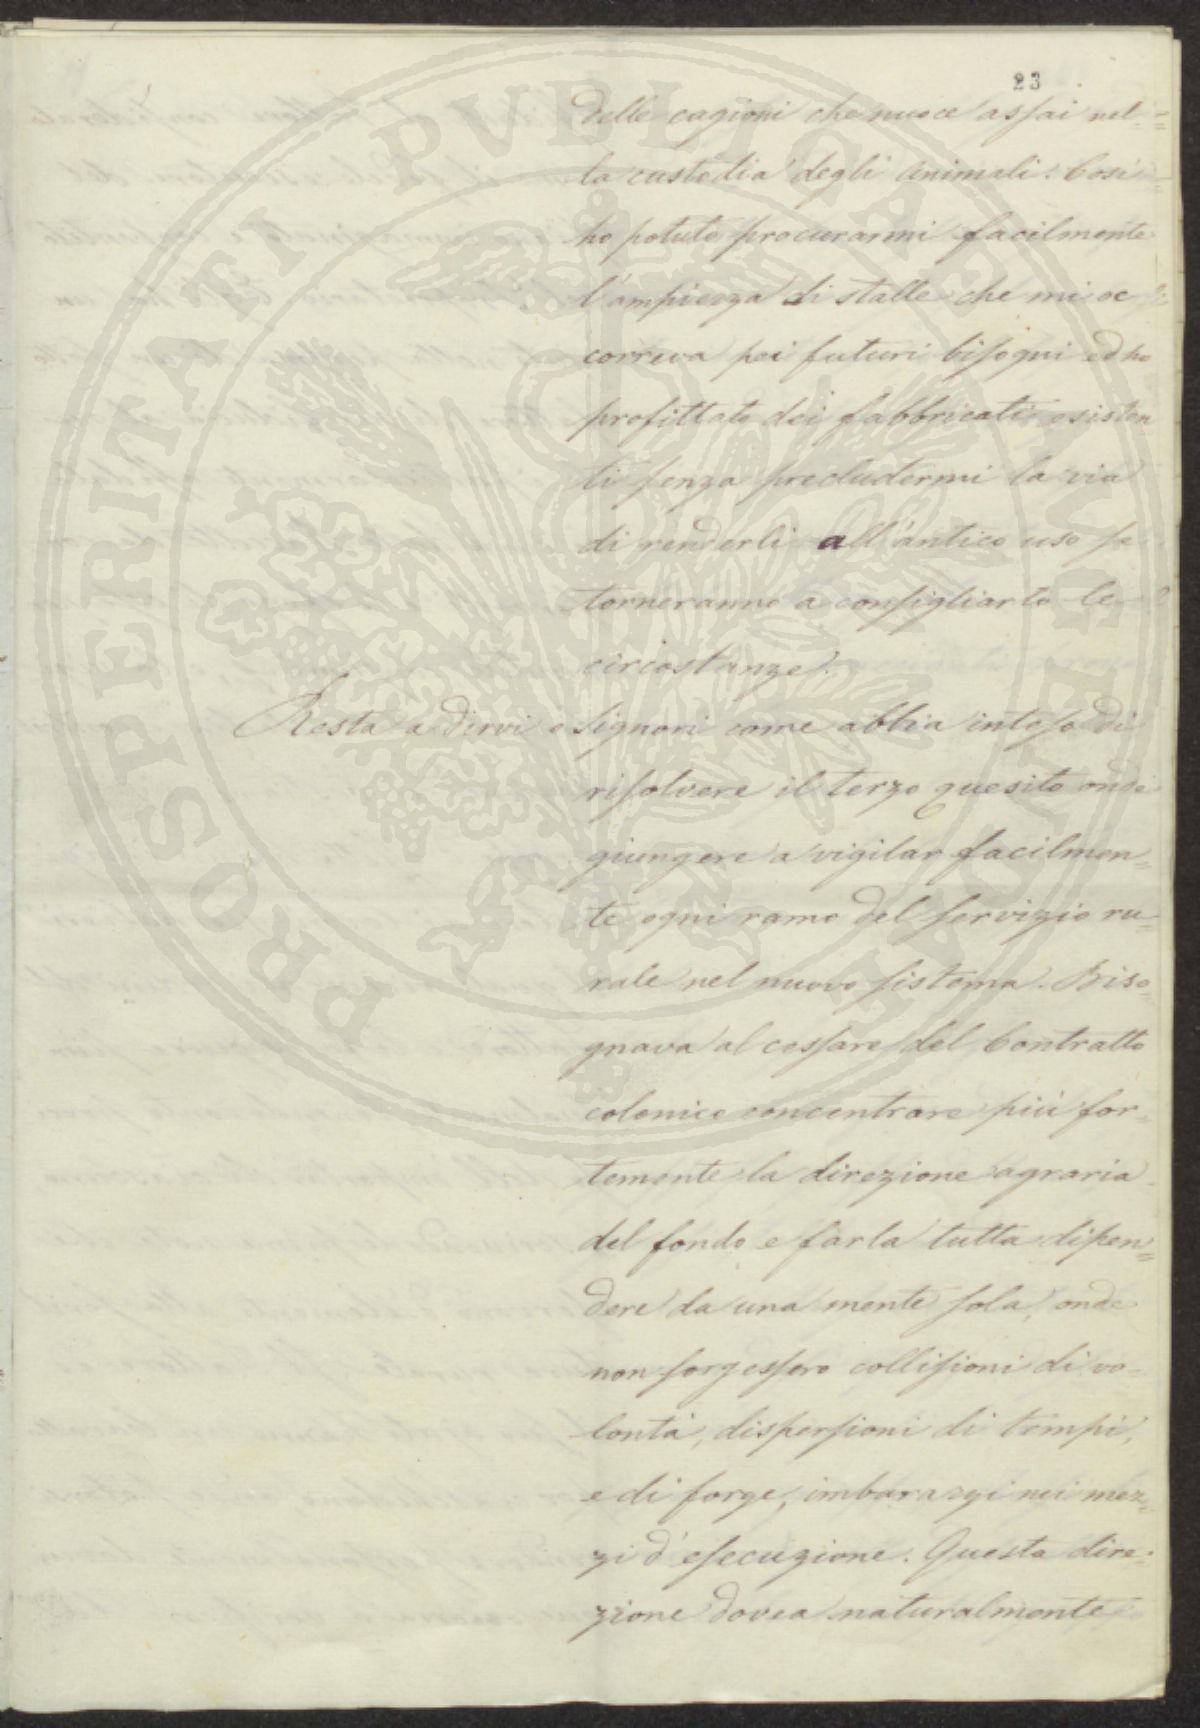 23
delle cagioni che nuoce assai nel=
la custodia degli animali. Così
ho potuto procurarmi facilmente
l'ampiezza di stalle che mi oc
correva pei futuri bisogni ed ho
profittato dei fabbricati esisten
ti senza precludermi la via
di renderli all'antico uso se
torneranno a consigliarlo le
circostanze.
Resta a dirvi o Signori come abbia inteso di
risolvere il terzo quesito onde
giungere a vigilar facilmen=
te ogni ramo del servizio ru=
rale nel nuovo sistema. Biso=
gnava al cessare del Contratto
colonico concentrare più for=
temente la direzione agraria
del fondo e farla tutta dipen=
dere da una mente sola, onde
non sorgessero collisioni di vo=
lontà, dispersioni di tempi,
e di forze, imbarazzi nei mez=
zi d'esecuzione. Questa dire=
zione dovea naturalmente
PROSPERITATI PVBLICAE AVGENDAE